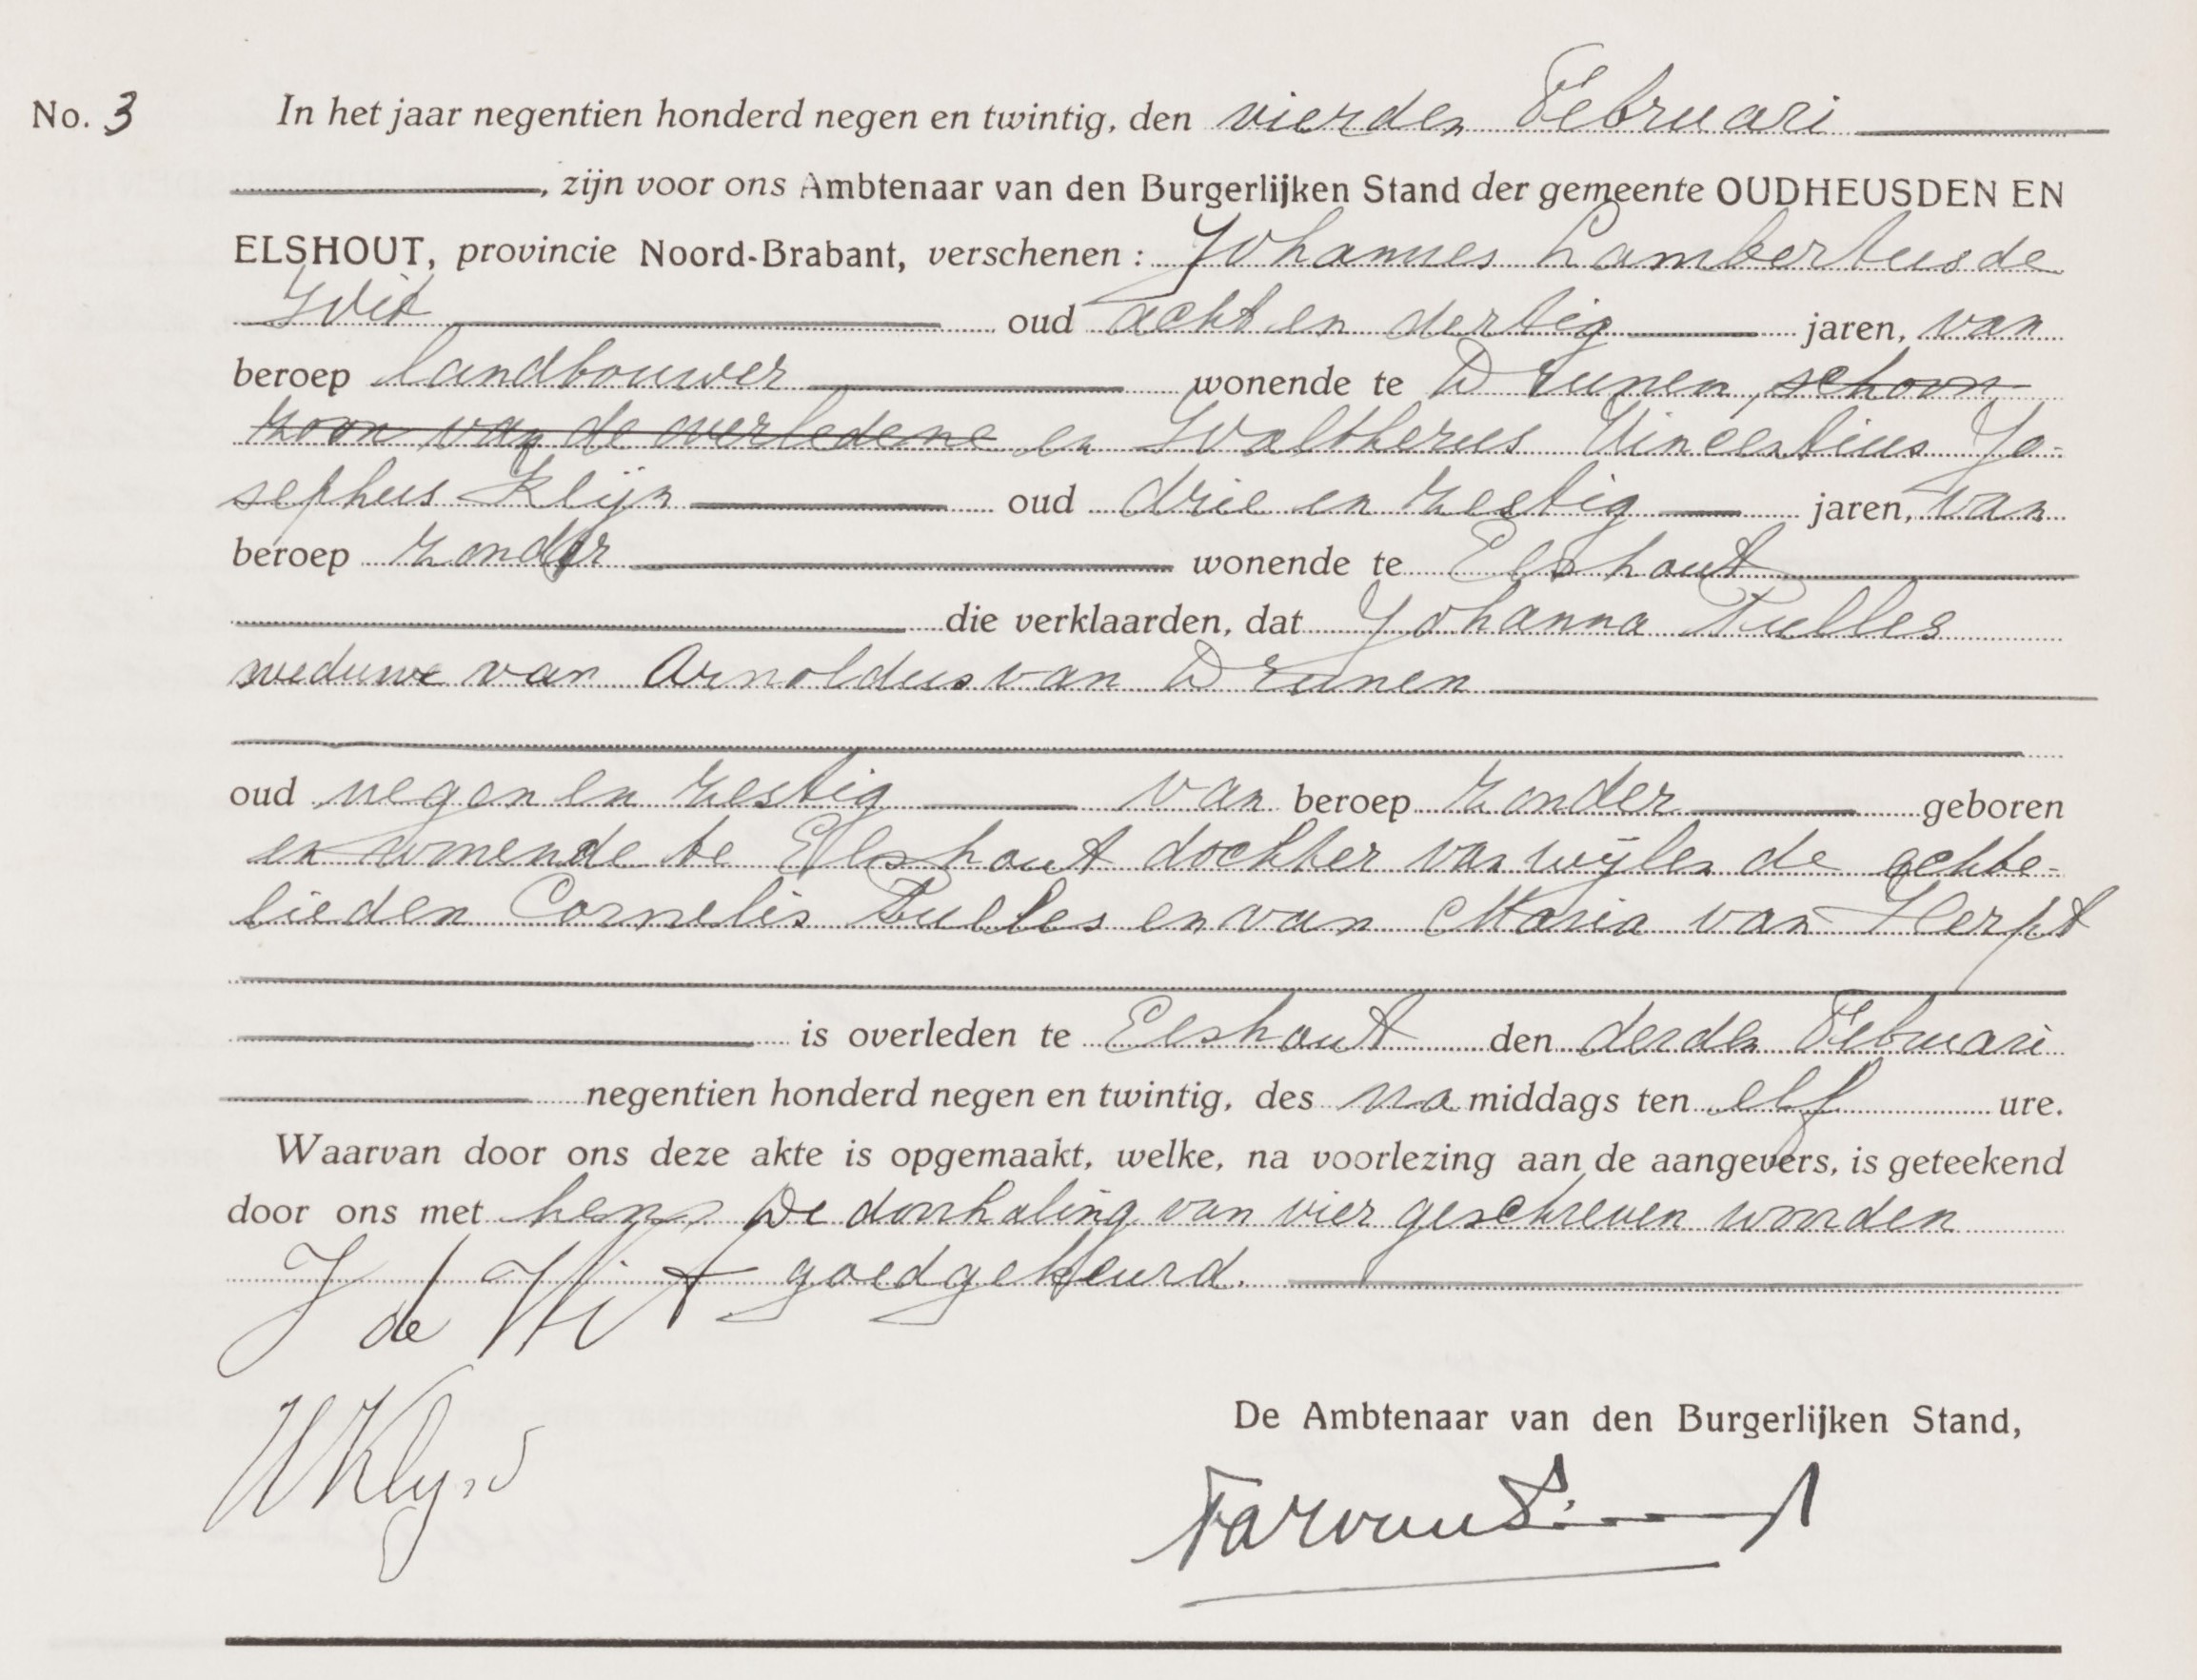 No. 3 In het jaar negentien honderd negen en twintig, den vierden Februari
, zijn voor ons Ambtenaar van den Burgerlijken Stand der gemeente OUDHEUSDEN EN
ELSHOUT, provincie Noord-Brabant, verschenen : Johannes Lambertus de
Wit oud acht en dertig jaren, van
beroep landbouwer wonende te Drunen, schoon
zoon van de overledene en Waltherus Vincentius Jo-
sephus Klijn oud drie en zestig jaren, van
beroep zonder wonende te Elshout
die verklaarden, dat Johanna Pulles
weduwe van Arnoldus van Drunen
oud negen en zestig van beroep zonder geboren
en wonende te Elshout dochter van wijlen de echte-
lieden Cornelis Pulles en van Maria van Herpt
is overleden te Elshout den derden Februari
negentien honderd negen en twintig, des na middags ten elf ure.
Waarvan door ons deze akte is opgemaakt, welke, na voorlezing aan de aangevers, is geteekend
door ons met hen, De doorhaling van vier geschreven woorden
goedgekeurd.
J de Wit
W Klijn
De Ambtenaar van den Burgerlijken Stand,